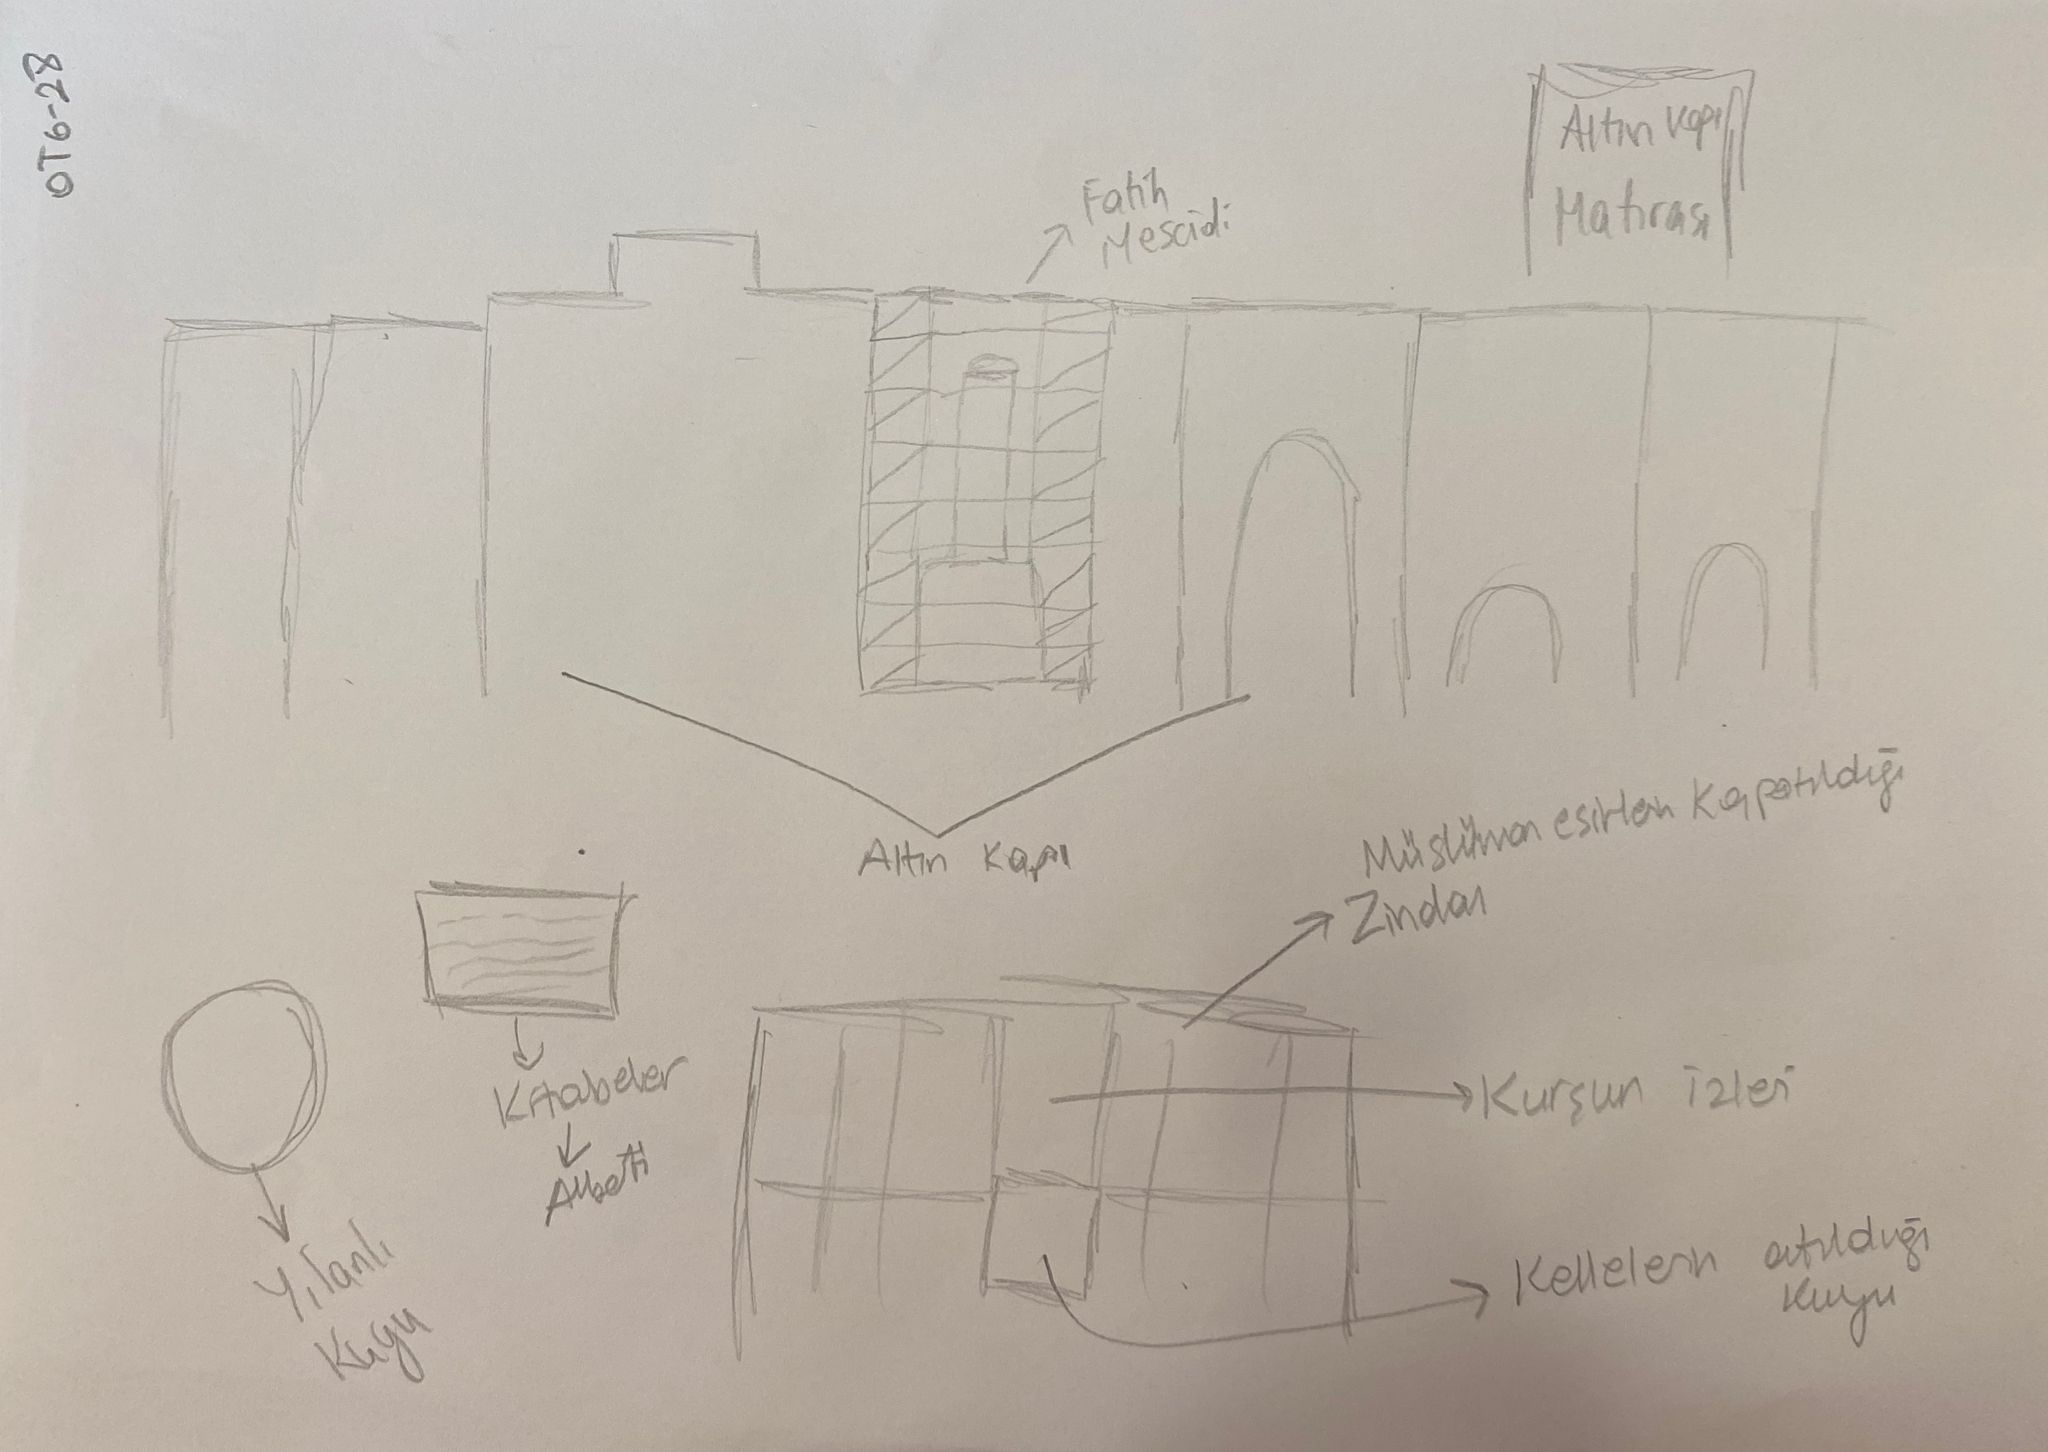 OT6-28
Altın Kapı
Matırası
Fatih
Mescidi
Altın Kapı
Müslüman esirlerin Kapatıldığı
Zindan
Kitabeler
Kurşun izleri
Yılanlı
Kuyu
Kellelerin atıldığı
Kuyu